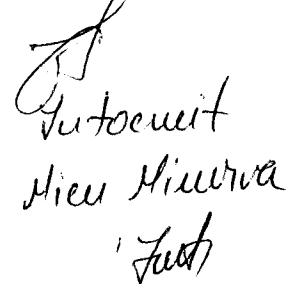 Intocmit
Micu Minerva